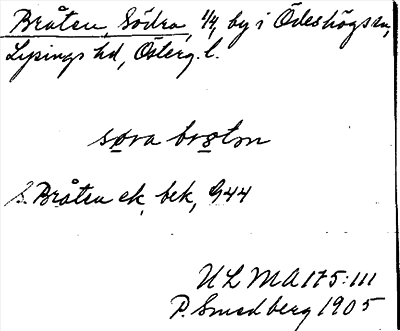 Bråten, Södra, 1/4, by i Ödeshögs sn,
Lysings hd, Österg. l.
søra brøtən
S. Bråten ek. bek, G44
ULMA 175:111
P. Smedberg 1905